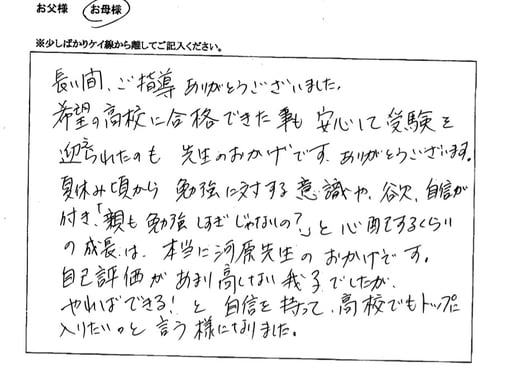 お父様 お母様
※少しばかりケイ線から離してご記入ください。
長い間、ご指導ありがとうございました。
希望の高校に合格できた事も安心して受験を
迎えられたのも先生のおかげです。ありがとうございます。
夏休み頃から勉強に対する意識や、欲、自信が
付き、「親も勉強しすぎじゃないの?」と心配するくらい
の成長は、本当に河原先生のおかげです。
自己評価があまり高くない我子でしたが、
やればできる!と自信を持って、高校でもトップに
入りたいっと言う様になりました。